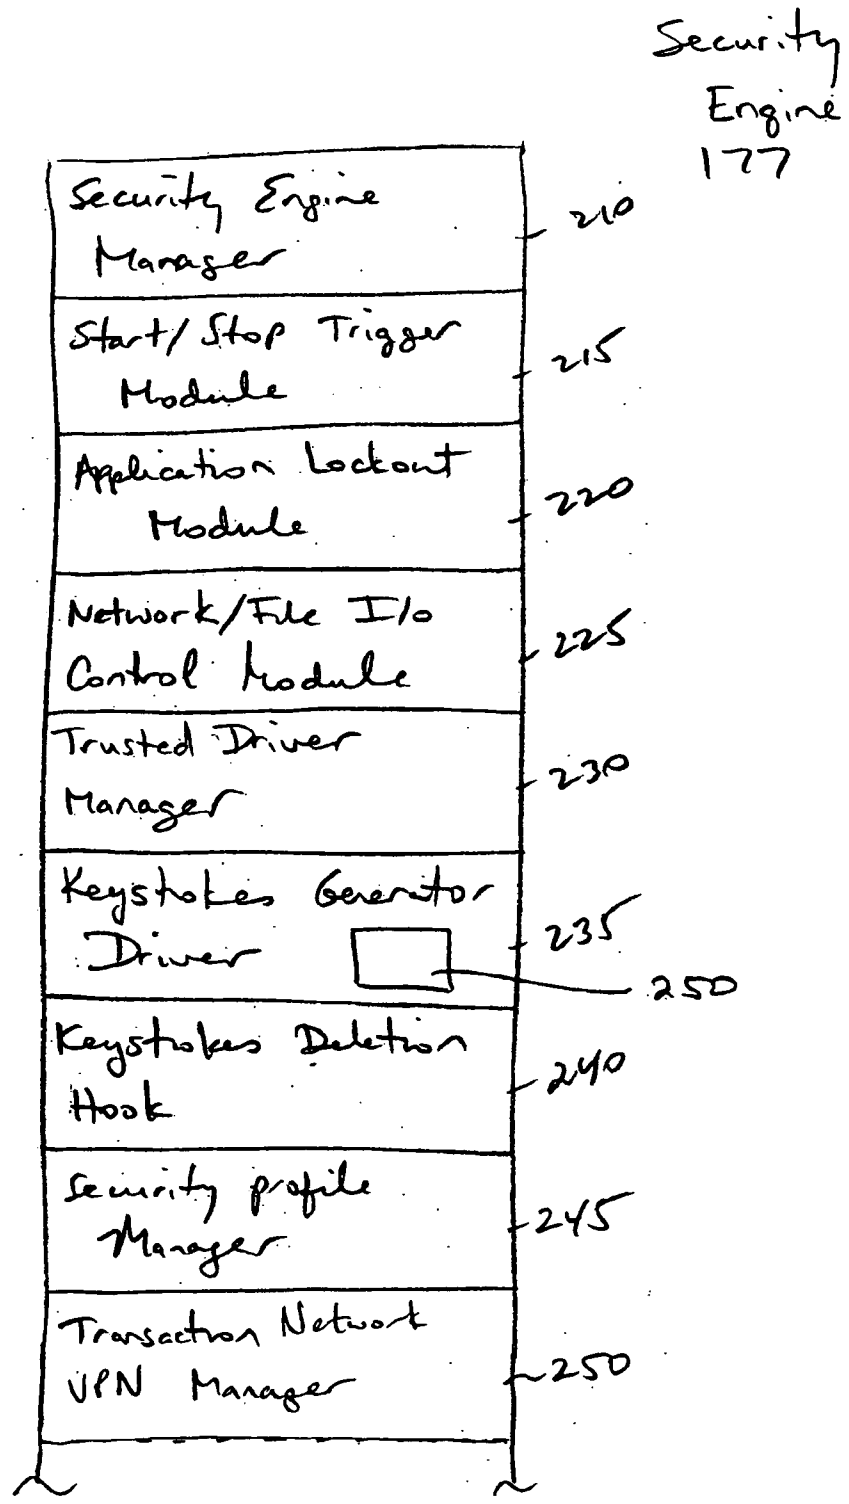 Security
Engine
177
Security Engine
Manager
210
Start/Stop Trigger
Module
215
Application Lockout
Module
220
Network/File I/O
Control Module
225
Trusted Driver
Manager
230
Keystrokes Generator
Driver
235
250
Keystrokes Deletion
Hook
240
Security profile
Manager
245
Transaction Network
VPN Manager
250